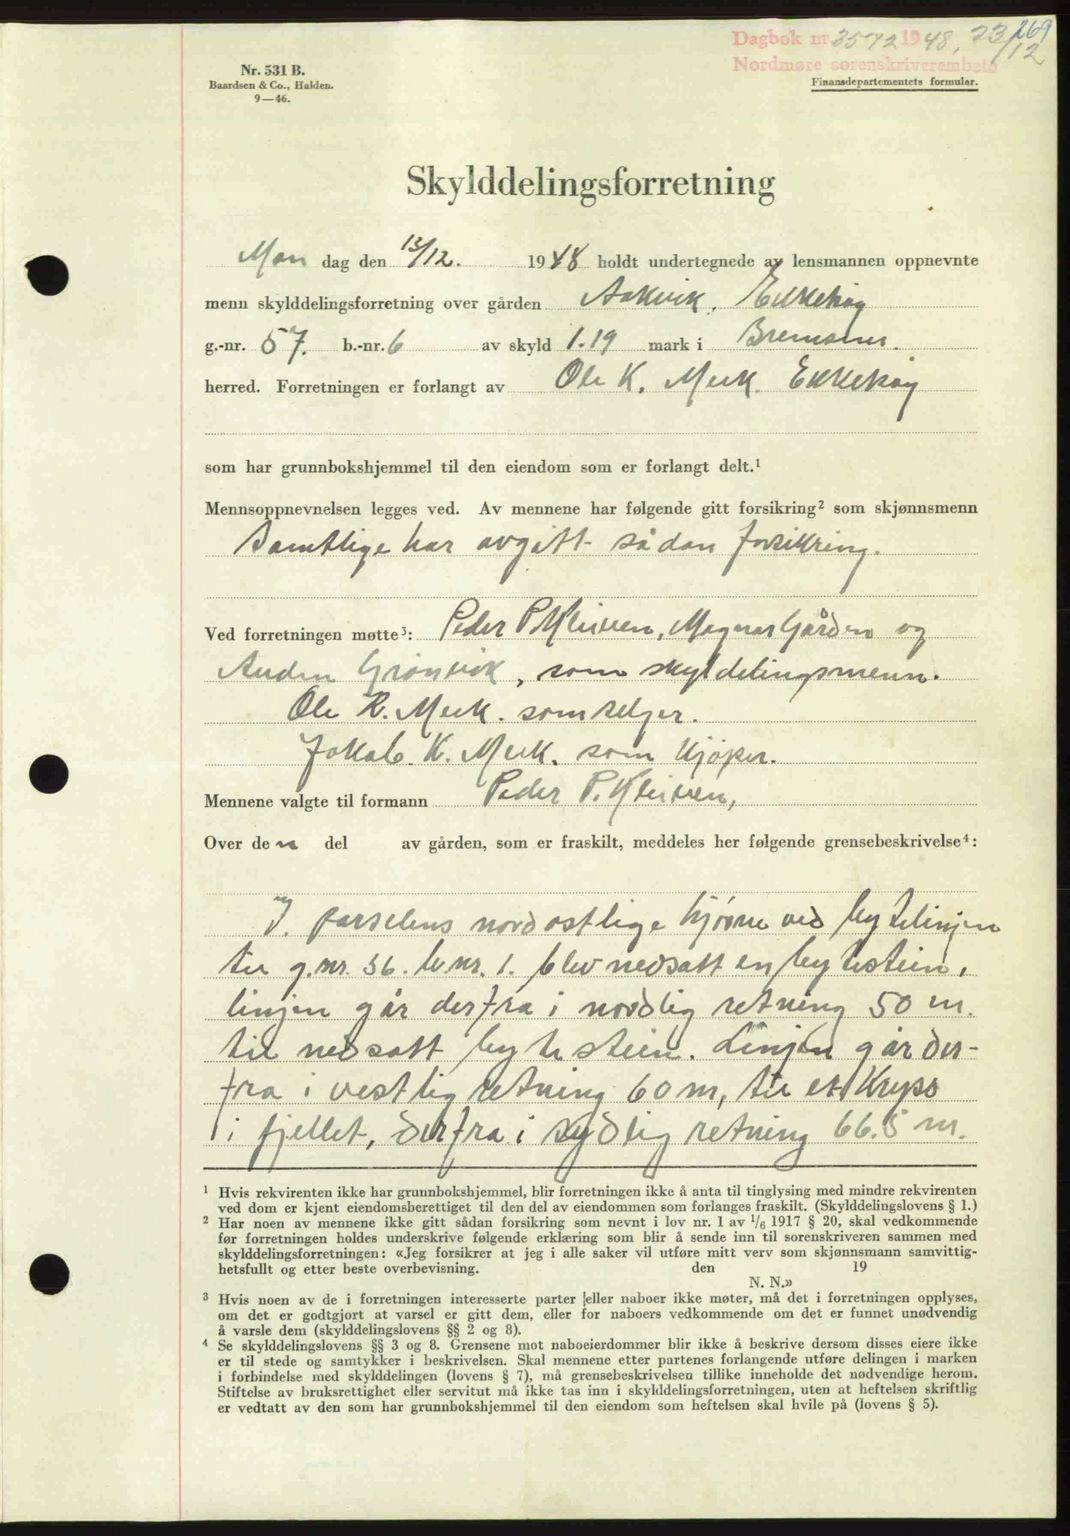 269
Dagbok nr 3572 1948, 23/12
Nordmøre sorenskriverembete
Nr. 531 B.
Baardsen & Co., Halden.
9—46.
Finansdepartementets formular.
Skylddelingsforretning
Man dag den 13/12. 1948 holdt undertegnede av lensmannen oppnevnte
menn skylddelingsforretning over gården Aakvik, Ekkehøy
g.-nr. 57. b.-nr. 6 av skyld 1.19 mark i Bremsnes.
herred. Forretningen er forlangt av Ole K. Merk. Ekkehøy
som har grunnbokshjemmel til den eiendom som er forlangt delt.¹
Mennsoppnevnelsen legges ved. Av mennene har følgende gitt forsikring² som skjønnsmenn
Samtlige har avgitt sådan forsikring.
Ved forretningen møtte³: Peder P. Kleiven, Magnar Gården og
Anden Grønvik, som skyldelingsmenn.
Ole K. Merk. som selger.
Jakob. K. Merk. som kjøper.
Mennene valgte til formann Peder P. Kleiven,
Over den del av gården, som er fraskilt, meddeles her følgende grensebeskrivelse⁴:
I. parselens nordostlige hjørne ved bytelinjen
til g.nr. 56. b.nr. 1. blev nedsatt en bytestein,
linjen går derfra i nordlig retning 50 m.
til nedsatt bytestein. Linjen går der-
fra i vestlig retning 60 m, til et Kryss
i fjellet, derfra i sydlig retning 66.5 m.
¹ Hvis rekvirenten ikke har grunnbokshjemmel, blir forretningen ikke å anta til tinglysing med mindre rekvirenten
ved dom er kjent eiendomsberettiget til den del av eiendommen som forlanges fraskilt. (Skylddelingslovens § 1.)
² Har noen av mennene ikke gitt sådan forsikring som nevnt i lov nr. 1 av 1/6 1917 § 20, skal vedkommende
før forretningen holdes underskrive følgende erklæring som blir å sende inn til sorenskriveren sammen med
skylddelingsforretningen: «Jeg forsikrer at jeg i alle saker vil utføre mitt verv som skjønnsmann samvittig-
hetsfullt og etter beste overbevisning. den 19
N. N.»
³ Hvis noen av de i forretningen interesserte parter eller naboer ikke møter, må det i forretningen opplyses,
om det er godtgjort at varsel er gitt dem, eller for naboers vedkommende om det er funnet unødvendig
å varsle dem (skylddelingslovens §§ 2 og 8).
⁴ Se skylddelingslovens §§ 3 og 8. Grensene mot naboeierdommer blir ikke å beskrive dersom disses eiere ikke
er til stede og samtykker i beskrivelsen. Skal mennene etter partenes forlangende utføre delingen i marken
i forbindelse med skylddelingen (lovens § 7), må grensebeskrivelsen tillike inneholde det nødvendige herom.
Stiftelse av bruksrettighet eller servitut må ikke tas inn i skylddelingsforretningen, uten at heftelsen skriftlig
er vedtatt av den som har grunnbokshjemmel til den eiendom som heftelsen skal hvile på (lovens § 5).